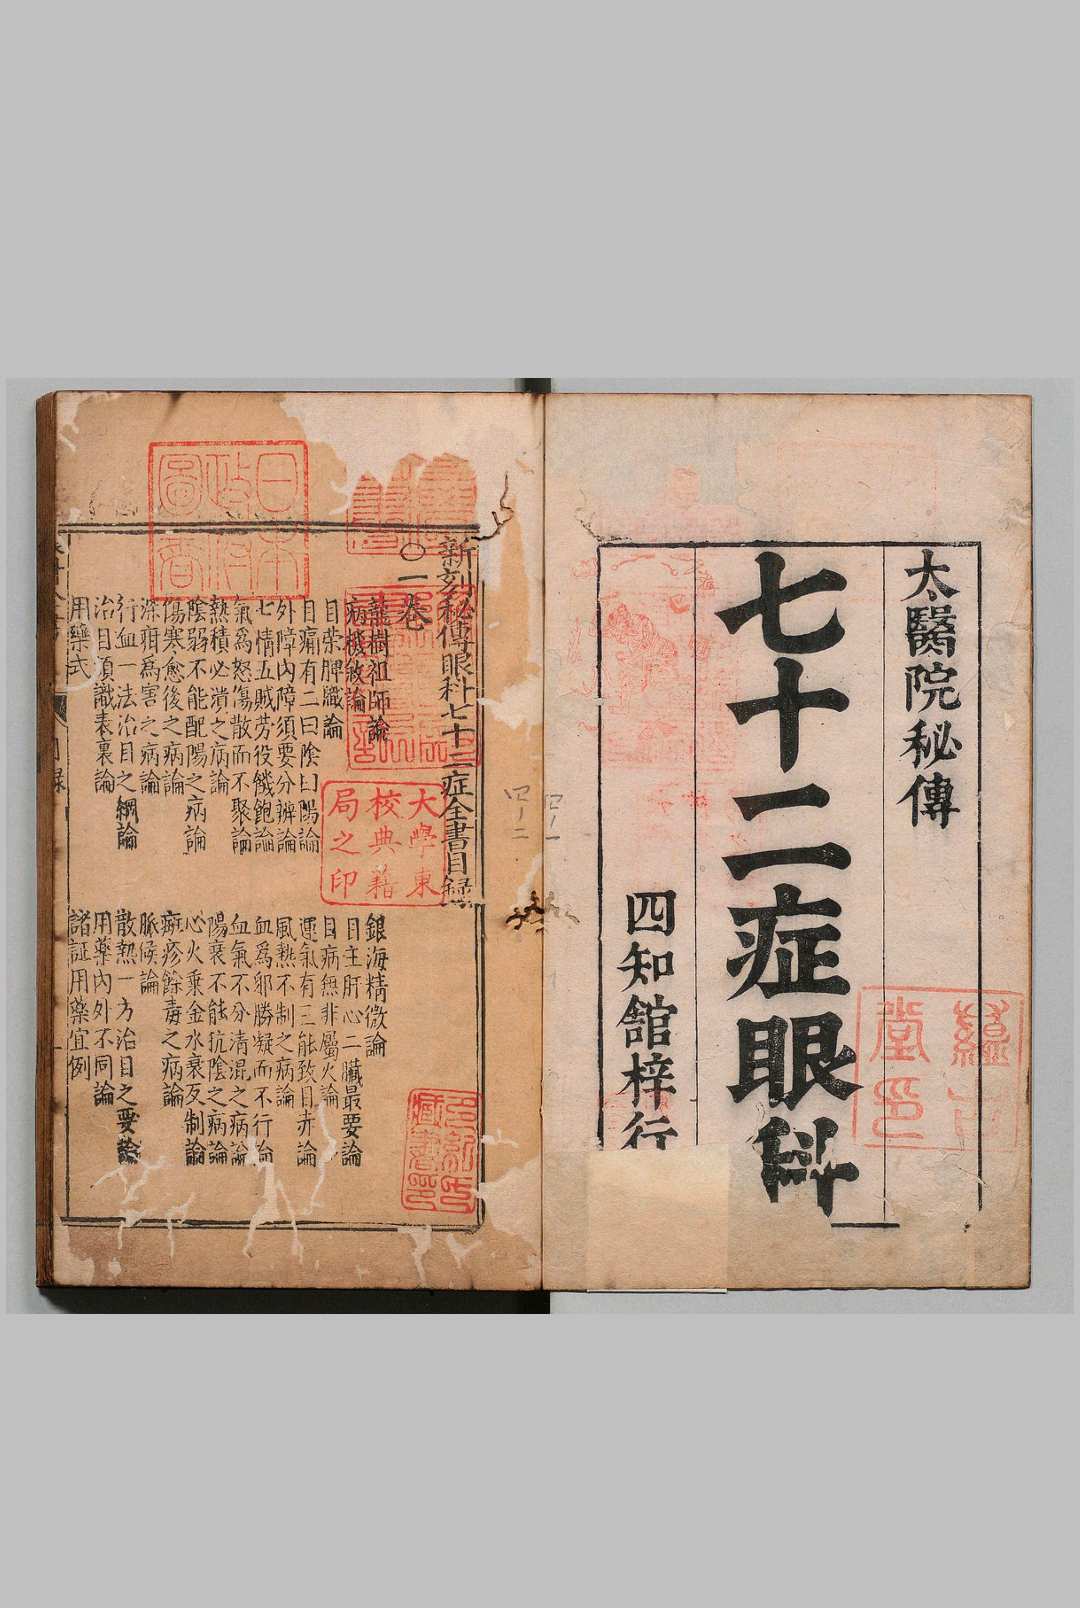 太醫院秘傳
七十二症眼科
四知舘梓行
新刻秘傳眼科七十二症全書目録
〇一卷
龍樹祖師論
銀海精微論
病機敘論
目主肝心二臟最要論
目榮脾臟論
目病無非屬火論
目痛有二曰陰曰陽論
運氣有三能致目赤論
外障內障須要分辨論
風熱不制之病論
七情五賊劳役饑飽論
血爲邪勝凝而不行論
氣爲怒傷散而不聚論
血氣不分清混之病論
熱積必潰之病論
陽衰不能抗陰之病論
陰弱不能配陽之病論
心火乗金水衰反制論
傷寒愈後之病論
癍疹餘毒之病論
深疳爲害之病論
脈候論
行血一法治目之綱論
散熱一方治目之要論
治目須識表裏論
用藥內外不同論
用藥式
諸証用藥宜例
目録
大學東
校典藉
局之印
日本
政府
圖書